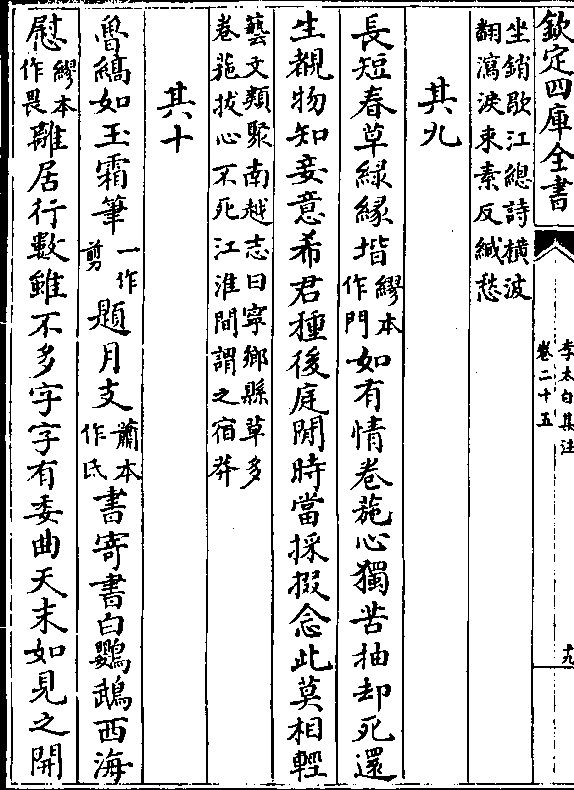 欽定四庫全書
李太白集注
卷二十五
十九
坐銷歇江總詩横波
翻瀉淚束素反緘愁
其九
長短春草綠緣堦繆本作門如有情卷葹心獨苦抽却死還
生覩物知妾意希君種後庭閒時當採掇念此莫相輕
藝文類聚南越志曰寧鄉縣草多
卷葹拔心不死江淮間謂之宿莽
其十
魯縞如玉霜筆一作剪題月支蕭本作氏書寄書白鸚鵡西海
慰繆本作畏離居行數雖不多字字有委曲天末如見之開